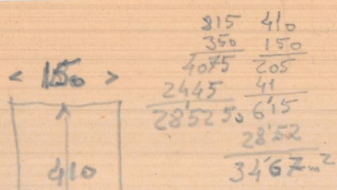 815 410
350 150
4075 205
2445 41
28'5250 6'15
28'52
34'67 m²
< 150 >
410